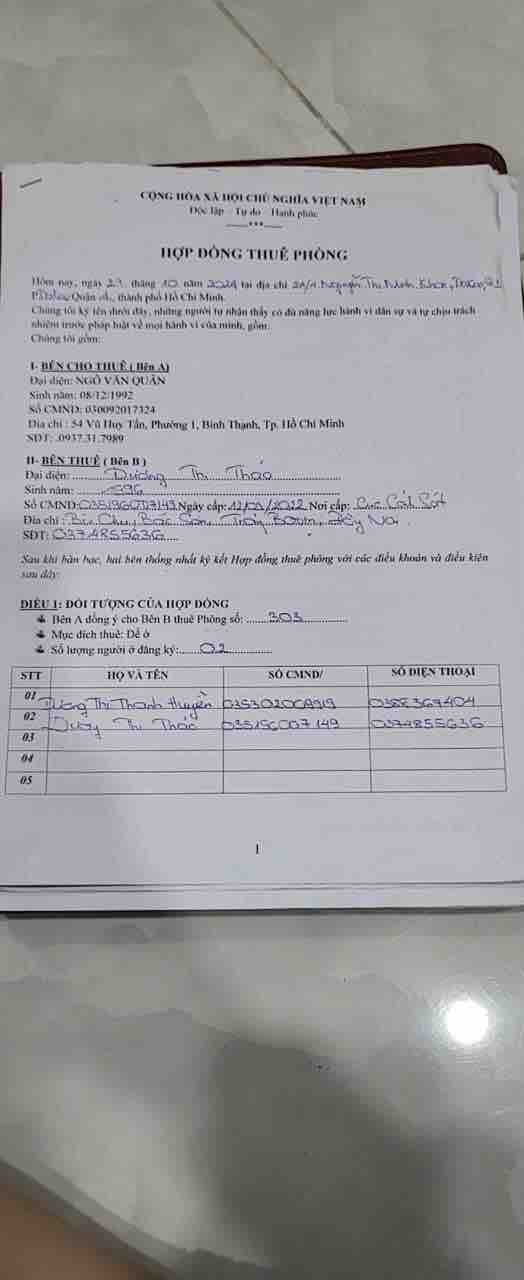 CỘNG HÒA XÃ HỘI CHỦ NGHĨA VIỆT NAM
Độc lập - Tự do - Hạnh phúc
HỢP ĐỒNG THUÊ PHÒNG
Hôm nay, ngày 29 tháng 10 năm 2024 tại địa chỉ 2A/1 Nguyễn Thị Minh Khai, Đakao, Q1
Quận thành phố Hồ Chí Minh.
Chúng tôi ký tên dưới đây, những người tự nhận thấy có đủ năng lực hành vi dân sự và tự chịu trách
nhiệm trước pháp luật về mọi hành vi của mình, gồm:
Chúng tôi gồm:
I- BÊN CHO THUÊ ( Bên A)
Đại diện: NGÔ VĂN QUÂN
Sinh năm: 08/12/1992
Số CMND: 030092017324
Địa chỉ : 54 Vũ Huy Tấn, Phường 1, Bình Thạnh, Tp. Hồ Chí Minh
SDT: .0937.31.7989
II- BÊN THUÊ ( Bên B )
Đại diện: Dương Thị Thảo
Sinh năm: 1996
Số CMND: 035196007149 Ngày cấp: /2022 Nơi cấp: Cục Cảnh Sát
Địa chỉ: Bùi Chu, Bắc Sơn, Trảng Bom, Đồng Nai
SĐT: 0374855636
Sau khi bàn bạc, hai bên thống nhất ký kết Hợp đồng thuê phòng với các điều khoản và điều kiện
sau đây:
ĐIỀU 1: ĐỐI TƯỢNG CỦA HỢP ĐỒNG
Bên A đồng ý cho Bên B thuê Phòng số: 303
Mục đích thuê: Để ở
Số lượng người ở đăng ký: 02
STT HỌ VÀ TÊN SỐ CMND/ SỐ ĐIỆN THOẠI
01 Dương Thị Thanh Huyền 0388367404
02 Dương Thị Thảo 035196007149 0374855636
03
04
05
1